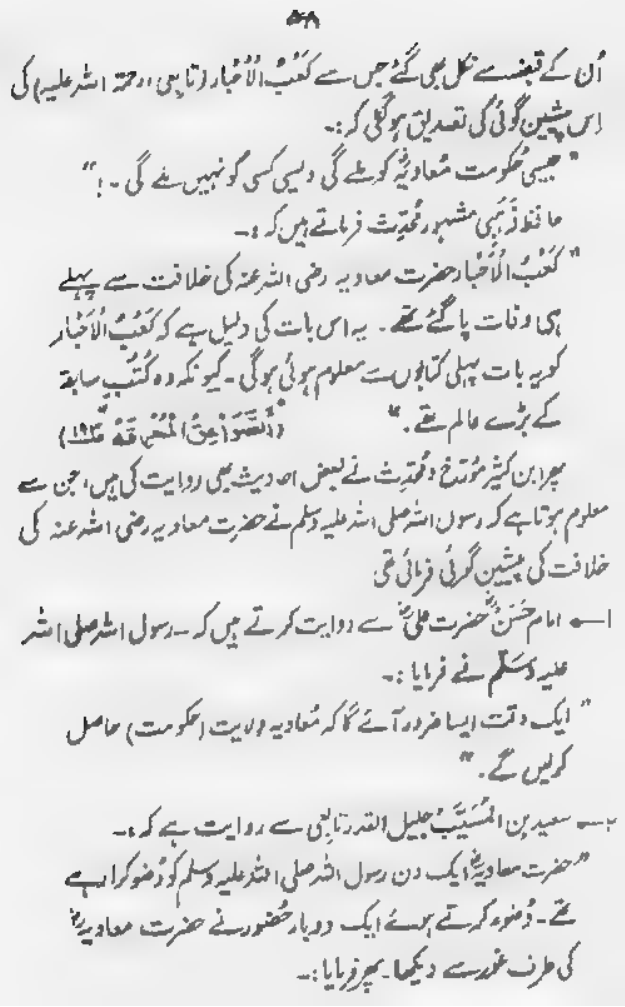 ۵۸
اُن کے قبضے سے نکل بھی گئے جس سے کَعْبُ الْاَحْبَار (تابِعی رحمۃ اللہ علیہ) کی
اِس پشین گوئی کی تصدیق ہوگئی کہ:۔
" جیسی حُکومت مُعاویہؓ کو ملے گی ویسی کسی کو نہیں ملے گی ۔!"
حافظ ذَہَبِی مشہور مُحَدِّث فرماتے ہیں کہ :۔
" کَعْبُ الْاَحْبَار حضرت معاویہ رضی اللہ عنہ کی خلافت سے پہلے
ہی وفات پا گئے تھے ۔ یہ اس بات کی دلیل ہے کہ کَعْبُ الْاَحْبَار
کو یہ بات پہلی کتابوں سے معلوم ہوئی ہوگی ۔ کیونکہ وہ کُتُبِ سابقہ
کے بڑے عالم تھے ۔" (اَلصَّوَاعِقُ الْمُحْرِقَۃُ ص۱۹۲)
پھر ابن کثیر مُورّخ و مُحَدِّث نے بعض احادیث بھی روایت کی ہیں، جن سے
معلوم ہوتا ہے کہ رسول اللہ صلی اللہ علیہ وسلم نے حضرت معاویہ رضی اللہ عنہ کی
خلافت کی پیشین گوئی فرمائی تھی
۱۔ امام حَسَنؓ حضرت علیؓ سے روایت کرتے ہیں کہ ۔ رسول اللہ صلی اللہ
علیہ وَسَلَّم نے فرمایا :۔
" ایک وقت ایسا ضرور آئے گا کہ مُعاویہ ولایت (حکومت) حاصل
کرلیں گے ۔"
۲۔ سعید بن الْمُسَیَّبْ جلیل القدر تابعی سے روایت ہے کہ :۔
" حضرت معاویہؓ ایک دن رسول اللہ صلی اللہ علیہ وسلم کو وُضو کرا رہے
تھے ۔ وُضوء کرتے ہوئے ایک دو بار حُضور نے حضرت معاویہؓ
کی طرف غور سے دیکھا ۔ پھر فرمایا :۔